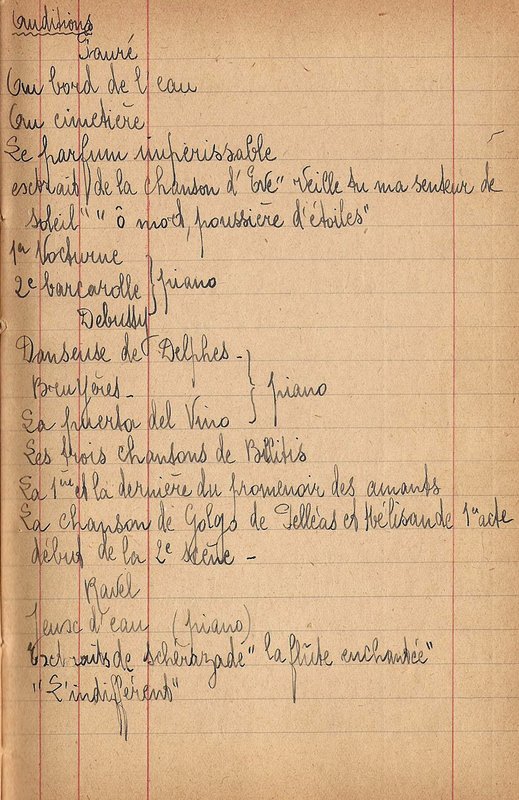 Auditions
Fauré
Au bord de l'eau
Au cimetière
Le parfum impérissable
extraits de la chanson d'Eve "Veille tu ma senteur de
soleil" "ô mort, poussière d'étoiles"
1er Nocturne
2e barcarolle } piano
Debussy
Danseuse de Delphes -
Bruyères - } piano
La puerta del Vino
Les trois chansons de Bilitis
La 1ère et la dernière du promenoir des amants
La chanson de Golgo de Pelléas et Mélisande 1er acte
début de la 2e scène -
Ravel
Jeux d'eau (piano)
Extraits de schérazade "la flûte enchantée"
"L'indifférent"